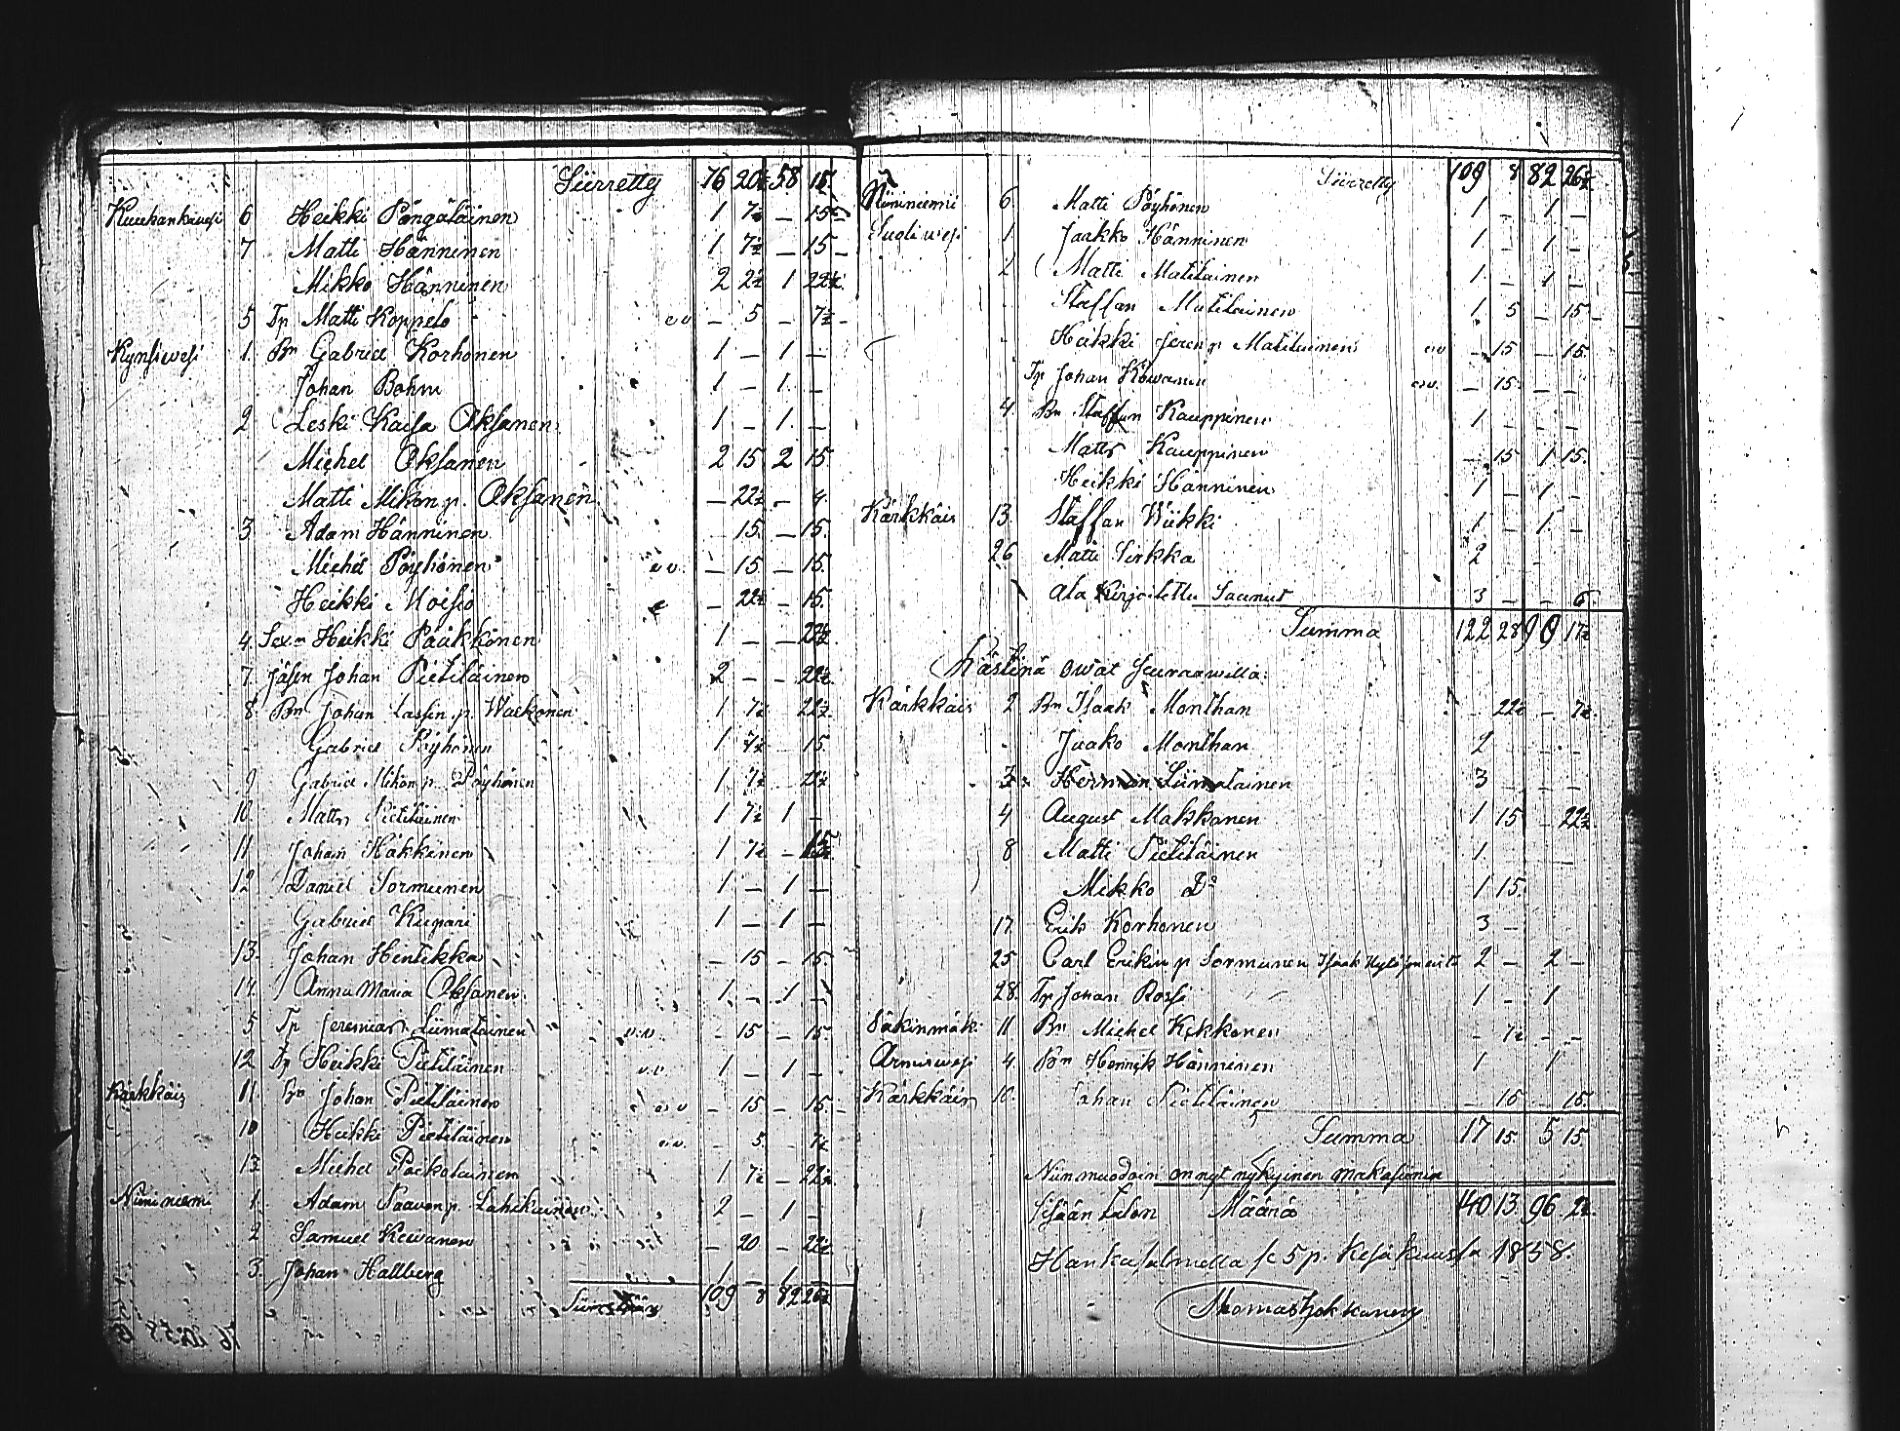 Siirretty 76 20½ 58 15
Kuuhankavesi 6 Heikki Pöngäläinen 1 7½ — 15
7 Matti Hänninen 1 7½ — 15
Mikko Hänninen 2 2½ 1 22½
5 Tp Matti Koppelo — 5 — 7½
Kynsivesi 1 Bn Gabriel Korhonen 1 — 1 —
Johan Bohm 1 — 1 —
2 Leski Kaisa Oksanen 1 — 1 —
Michel Oksanen 2 15 2 15
Matti Mikon p. Oksanen — 22½ — 4
3 Adam Hänninen 15 — 15
Michel Pöyhönen — 15 — 15
Heikki Moisio — 22½ — 15
4 Heikki Pääkkönen 1 — — 22½
7 Johan Pietiläinen 2 — — 22½
8 Bn Johan Lassin p. 1 7½ 22½
Gabriel Pöyhönen 1 7½ — 15
9 Gabriel Mikon p. Pöyhönen 1 7½ — 22½
10 Matts Pietiläinen 1 7½ 1 —
11 Johan Häkkinen 1 7½ —
12 Daniel Sormunen 1 — 1 —
Gabriel Kupari 1 — 1 —
13 Johan Hintikka — 15 — 15
14 Anna Maria Oksanen 1 — 1 —
5 Tp Jeremias Liimatainen — 15 — 15
12 Tp Heikki Pietiläinen 1 — 1 —
Kärkkäis 11 Bn Johan Pietiläinen — 15 — 15
10 Heikki Pietiläinen — 5 — 7½
13 Michel Paikolainen 1 7½ — 22½
Niininiemi 1 Adam Paavon p. Lahikainen 2 — 1 —
2 Samuel Kewanen — 20 — 22½
3 Johan Hallberg 1 — 1 —
109 8 82 26½
Siirretty 109 8 82 26½
Niininiemi 6 Matti Pöyhönen 1 — 1 —
Suolivesi 1 Jaakko Hänninen 1 — 1 —
2 Matti Matilainen 1 — 1 —
Staffan Matilainen 1 5 — 15
Heikki Jerem p Matilainen — 15 — 15
Tp Johan Kowanen — 15 — —
4 Bn Staffan Kauppinen 1 — — —
Matts Kauppinen — 15 1 15
Heikki Hänninen 1 — 1 —
Kärkkäis 13 Staffan Wiikki 1 — 1 —
26 Matti Sirkka 2
Ala Kirjoitettu Saanut 3 — — 6
Summa 122 28 90 17½
Rästinä owat seuraawilla:
Kärkkäis 2 Bn Isaak Monthan 22½ — 7½
Jaako Monthan 2
3 Herman Liimatainen 3
4 August Makkonen 1 15 — 22½
8 Matti Pietiläinen 1
Mikko Do 1 15
17 Erik Korhonen 3 —
25 Carl Erikin p Sormunen Isaak 2 — 2 —
28 Tp Johan Rossi 1 — 1
11 Bn Michel Kekkonen — 7½ — —
Armisvesi 4 Bn Henrik Hänninen 1 1
Kärkkäis 10 Johan Pietiläinen — 15 — 15
Summa 17 15 5 15
Niinmuodoin on nyt nykyinen makasiinin
sisään talon Määrä 140 13 96 2½
Hankasalmella se 5 p. Kesäkuussa 1858.
Thomas Hokkanen